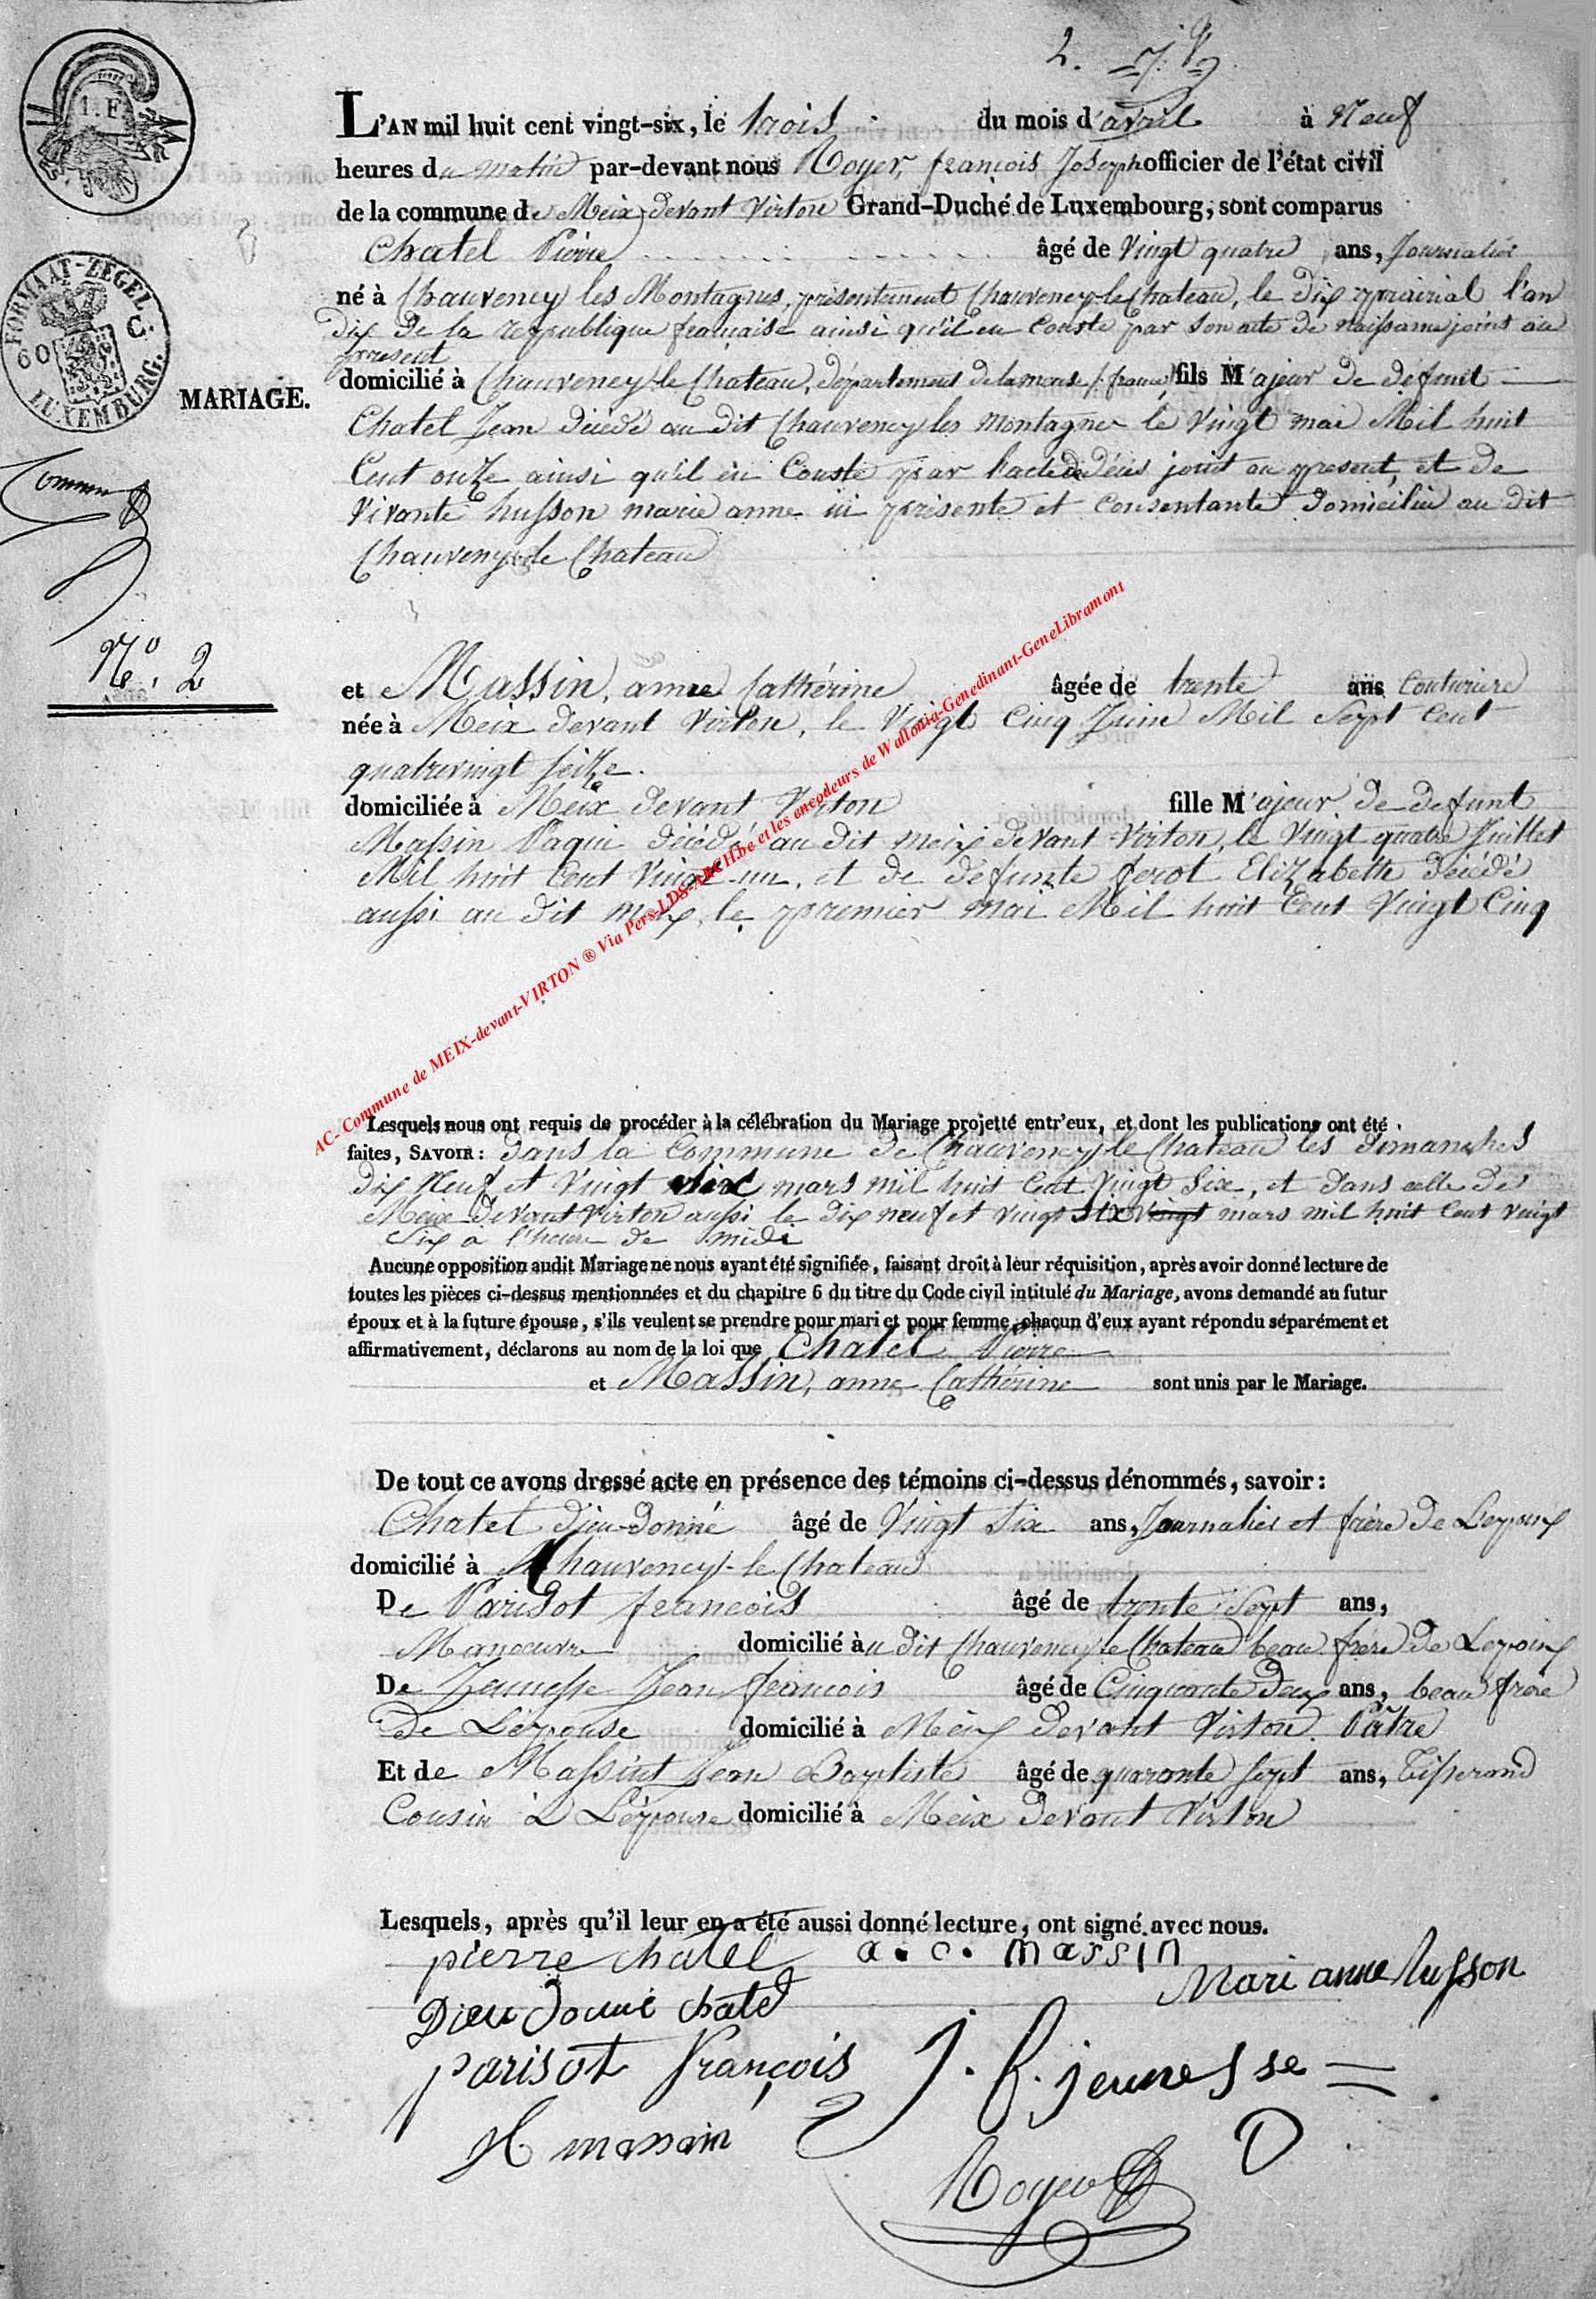 2.
1. F
L'AN mil huit cent vingt-six, le trois du mois d'avril à Neuf
heures du matin par-devant nous Royer, françois Joseph officier de l'état civil
de la commune de Meix devant Virton Grand-Duché de Luxembourg, sont comparus
Chatel Pierre âgé de Vingt quatre ans, Journalier
né à Chauvency les Montagnes, présentement Chauvency-le Chateau, le dix prairial l'an
dix de la republique française ainsi qu'il en Conste par son acte de naissance joint au
present
domicilié à Chauvency-le Chateau, département de la meuse (france) fils Majeur de défunt
FORMAAT-ZEGEL
60 C.
LUXEMBURG.
MARIAGE.
Chatel Jean décédé au dit Chauvency les Montagnes le Vingt mai Mil huit
Cent onze ainsi qu'il en Conste par l'acte de décès joint au present, et de
Vivante husson marie anne ici présente et Consentante Domiciliée au dit
Chauvency-le Chateau
N.º 2
et Massin, anne Cathérine âgée de trente ans Couturiere
née à Meix devant Virton, le Vingt Cinq Juin Mil Sept Cent
quatrevingt seitze.
domiciliée à Meix devant Virton fille Majeur de defunt
Massin Paqui décédé au dit meix devant Virton, le Vingt quatre Juillet
Mil huit Cent Vingt-un, et de defunte ferot Elizabette décédé
aussi au dit Meix, le premier mai Mil huit Cent Vingt Cinq
AC- Commune de MEIX-devant-VIRTON ® Via Pers-LDS-ARCH.be et les encodeurs de Wallonia-Genedinant-GeneLibramont
Lesquels nous ont requis de procéder à la célébration du Mariage projetté entr'eux, et dont les publications ont été
faites, SAVOIR : dans la Commune de Chauvency le Chateau les dimanches
dix Neuf et Vingt six mars mil huit Cent Vingt Six, et dans celle de
Meix devant Virton aussi le dix neuf et vingt six vingt mars mil huit Cent vingt
Six a l'heure de midi
Aucune opposition audit Mariage ne nous ayant été signifiée, faisant droit à leur réquisition, après avoir donné lecture de
toutes les pièces ci-dessus mentionnées et du chapitre 6 du titre du Code civil intitulé du Mariage, avons demandé au futur
époux et à la future épouse, s'ils veulent se prendre pour mari et pour femme, chacun d'eux ayant répondu séparément et
affirmativement, déclarons au nom de la loi que Chatel Pierre
et Massin, anne Cathérine sont unis par le Mariage.
De tout ce avons dressé acte en présence des témoins ci-dessus dénommés, savoir :
Chatel Dieu-donné âgé de Vingt six ans, Journalier et frère de Lepoux
domicilié à Chauvency-le Chateau
De Parisot françois âgé de trente Sept ans,
Manoeuvre domicilié au dit Chauvency le Chateau beau frère de Lepoux
De Jeunesse Jean francois âgé de Cinquante deux ans, beau frère
De L'épouse domicilié à Meix devant Virton. Pâtre
Et de Massint Jean Baptiste âgé de quarante sept ans, Tisserand
Cousin à L'épouse domicilié à Meix devant Virton
Lesquels, après qu'il leur en a été aussi donné lecture, ont signé avec nous.
pierre chatel a. c. massin
Mari anne husson
Dieu donné chatel
parisot François J. f. jeunesse
massin
Royer